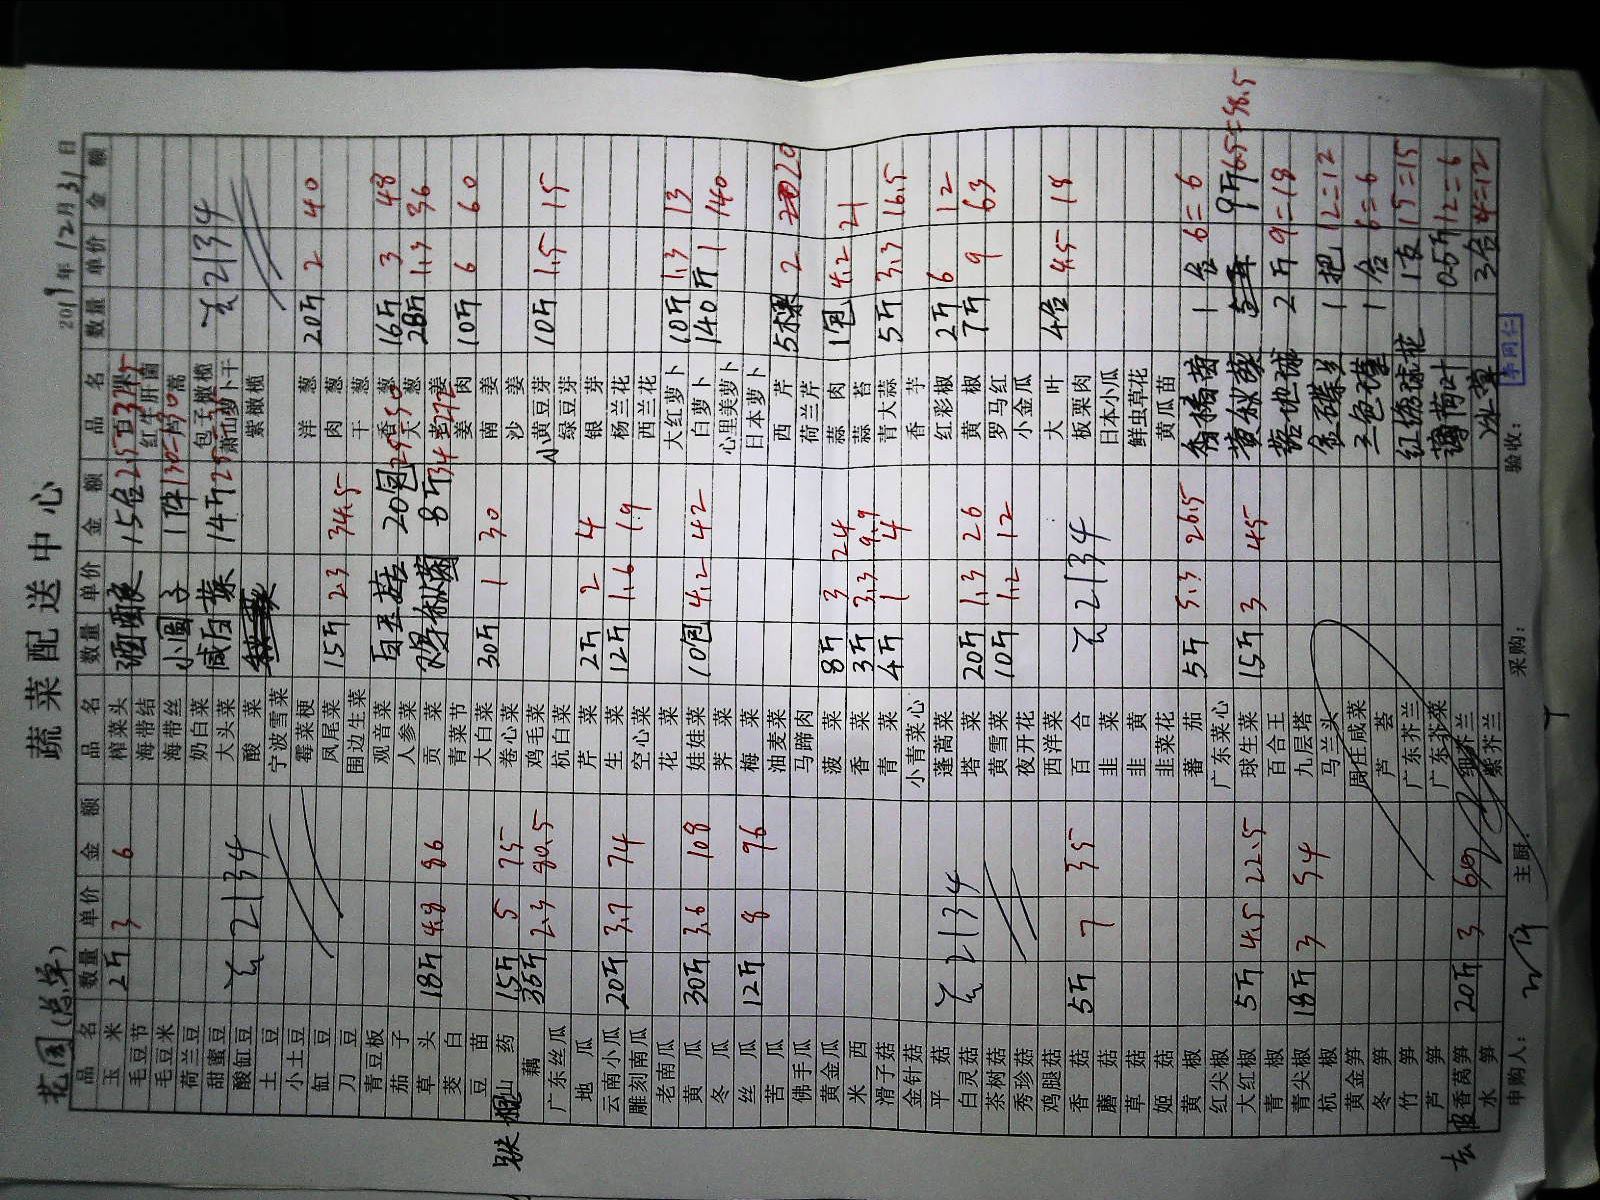 蔬菜配送中心
花园(总单) 2019年12月31日
品名 数量 单价 金额 品名 数量 单价 金额 品名 数量 单价 金额
玉米 2斤 3 6 榨菜头 酒酿 15盒 25
毛豆节 海带结 红牛肝菌
毛豆米 海带丝 小圆子 1件 130=130 茼蒿
荷兰豆 奶白菜 包子橄榄
甜蜜豆 大头菜 咸白菜 14斤 萧山萝卜干 2134
酸缸豆 2134 酸菜 紫橄榄
土豆 宁波雪菜
小土豆 霉菜梗 洋葱 20斤 2 40
缸豆 凤尾菜 15斤 2.3 34.5 肉葱
刀豆 围边生菜 干葱
青豆板 观音菜 20包 香葱 16斤 3 48
茄子 人参菜 大葱 28斤 1.3 36
草头 18斤 4.8 86 贡菜 8斤 老姜
茭白 青菜节 姜肉 10斤 6 60
豆苗 大白菜 30斤 1 30 南姜
铁棍山药 15斤 5 75 卷心菜 沙姜
藕 35斤 2.3 80.5 鸡毛菜 小黄豆芽 10斤 1.5 15
广东丝瓜 杭白菜 绿豆芽
地瓜 芹菜 2斤 2 4 银芽
云南小瓜 20斤 3.7 74 生菜 12斤 1.6 19 杨兰花
雕刻南瓜 空心菜 西兰花
老南瓜 花菜 大红萝卜 10斤 1.3 13
黄瓜 30斤 3.6 108 娃娃菜 10包 4.2 42 白萝卜 140斤 1 140
冬瓜 荠菜 心里美萝卜
丝瓜 12斤 8 96 梅菜 日本萝卜
苦瓜 油麦菜 西芹 5棵 2 20
佛手瓜 马蹄肉 荷兰芹
黄金瓜 菠菜 8斤 3 24 蒜肉 1包 4.2 21
米西 香菜 3斤 3.3 9.9 蒜苔
滑子菇 青菜 4斤 1 4 青大蒜 5斤 3.3 16.5
金针菇 小青菜心 香芋
平菇 2134 蓬蒿菜 红彩椒 2斤 6 12
白灵菇 塔菜 20斤 1.3 26 黄椒 7斤 9 63
茶树菇 黄雪菜 10斤 1.2 12 罗马红
秀珍菇 夜开花 小金瓜
鸡腿菇 西洋菜 大叶 4盒 4.5 18
香菇 5斤 7 35 百合 2134 板栗肉
蘑菇 韭菜 日本小瓜
草菇 韭黄 鲜虫草花
姬菇 韭菜花 黄瓜苗
黄椒 番茄 5斤 5.3 26.5 1盒 6=6
红尖椒 广东菜心 黄秋葵 9斤 6.5=58.5
大红椒 5斤 4.5 22.5 球生菜 15斤 3 45
青椒 百合王 2斤 9=18
青尖椒 18斤 3 54 九层塔 1把 12=12
杭椒 马兰头 三色堇 1盒 6=6
黄金笋 周庄咸菜
冬笋 芦荟 红绣球花 1支 15=15
竹笋 广东芥兰
芦笋 广东芥菜 薄荷叶 0.5斤 12=6
香莴笋 20斤 3 60 细芥兰
水笋 紫芥兰 冰草 3盒 4=12
申购人： 主厨： 采购： 验收： 李同仁